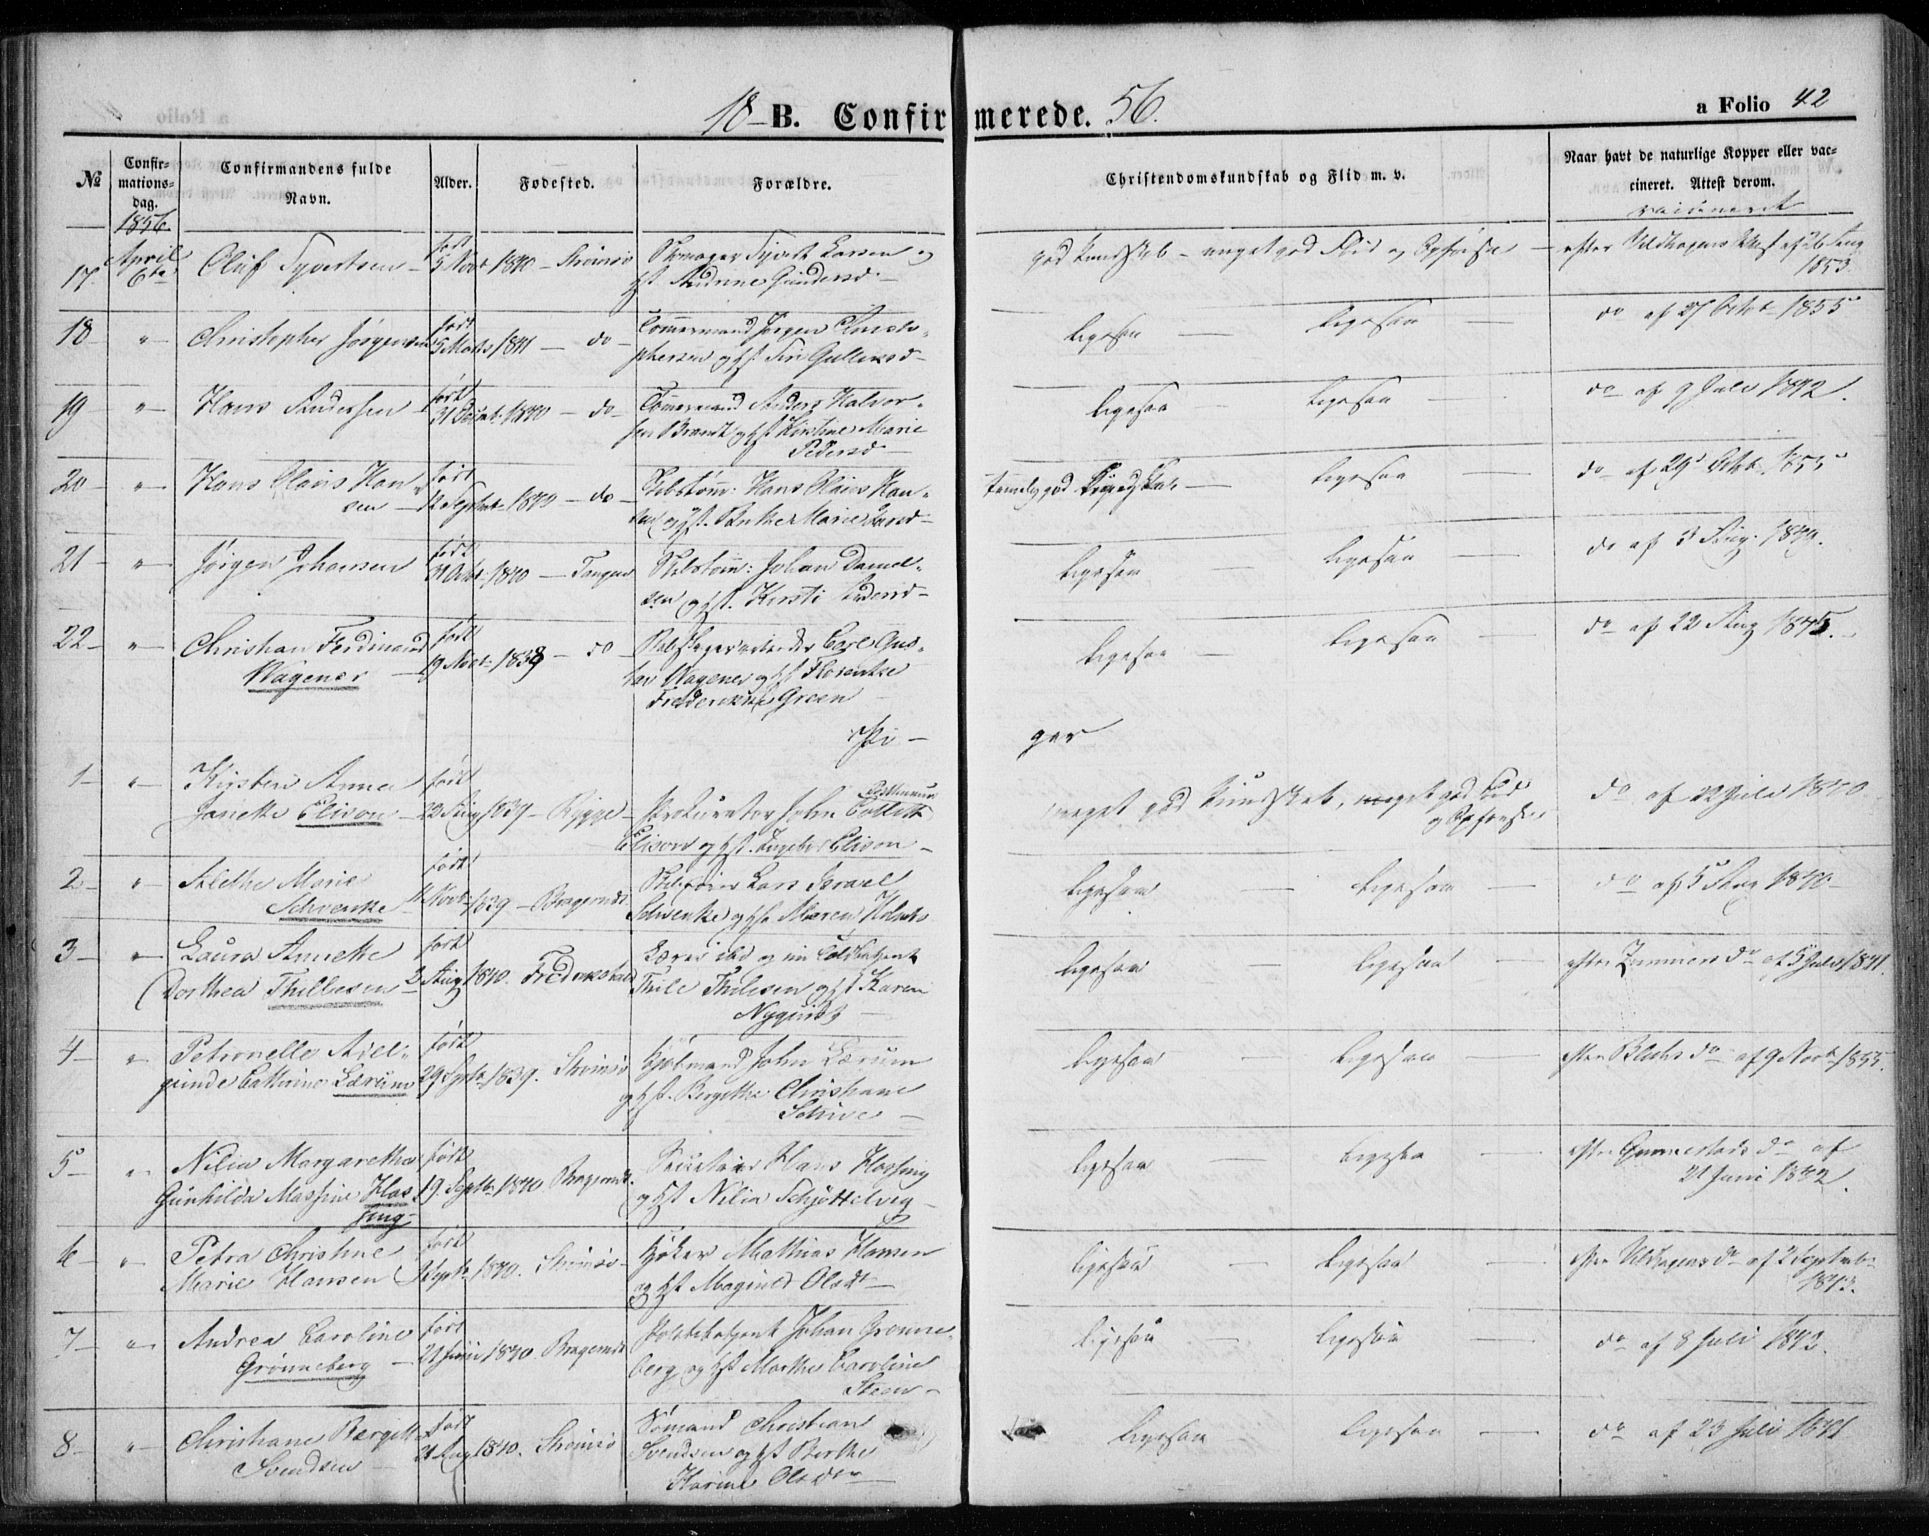 18 B. Confirmerede. 56.
a Folio 42
№
Confirmations-
dag.
Confirmandens fulde
Navn.
Alder.
Fødested.
Forældre.
Christendomskundskab og Flid m. v.
Naar havt de naturlige Kopper eller vac-
cineret. Attest derom.
1856
17. April 6te Oluf Syvertsen født 5 Novr 1840 Strømsø
Syvert Larsen og
Gundersd
god Kundskab - meget god Flid og Opførsel
efter Vildhagens Attest af 26
1853.
18 " Christopher Jørgensen født 5 Marts 1841 do
Tømmermand Jørgen Christo-
phersen og Siri Gullensd
ligesaa ligesaa do af 27 Octbr 1855
19 " Hans Andersen født 1840 do
Tømmermand Anders Halvor-
sen Brandt og Hst Kirstine Marie
Pedersd
ligesaa ligesaa do af 9 Juli 1842.
20 " Hans Claus Han-
sen født 12 Septbr 1840 do
Skibstøm: Hans Claus Han-
sen og Hst. Marie
temmelig god Kundskab ligesaa do af 29 Octbr 1855
21 " Jørgen Johansen født 31 Octbr 1840 Tangen
Skibstøm: Johan Daniel-
sen og Hst. Kirsti
ligesaa ligesaa do af 3 Aug. 1849.
22 " Christian Ferdinand
Wagener født 19 Novr 1838 do
Carl Gus-
tav Wagener og Hst Florentine
Frederikke Green
ligesaa ligesaa do af 22 Aug 1845.
Pi - ger
1 " Kirsten Anna
Janette Elison født 22 Aug 1839 Rygge
Prokurator John Collett
Elison og Hst. Ingeborg Elison
meget god Kundskab, meget god Flid
og Opførsel
do af 22 Juli 1840
2 " Alethe Marie
Schwenke født 11 Novbr 1839 Bragernæs
Lars Israel
Schwenke og Hst Maren
ligesaa ligesaa do af 5 Aug 1840
3 " Laura Annette
Dorthea Thillesen født 2 Aug 1840. Fredrikstad
Thile Thilesen og Hst Karen
Nyquist
ligesaa ligesaa efter Zimmers do af 5 Juli 1841.
4 " Petronelle Adel-
gunde Cathrine Lærum født 29 Septb 1839. Strømsø
Kjøbmand John Lærum
og Hst. Birgitte Christiane
Schive
ligesaa ligesaa efter do af 9 Novbr 1855.
5 " Nilia Margaretha
Gunhilda Massine Has-
sing født 19 Septb. 1840 Bragernæs.
Hans Hassing
og Hst Nilia Schjøttelvig
ligesaa ligesaa efter Gunnestads do af
21 Juni 1842.
6 " Petra Christine
Marie Hansen født Septb 1840. Strømsø
Høker Mathias Hansen
og Hst Maghild Olsdt
ligesaa ligesaa efter Vildhagens do af 2 Septemb
1842.
7 " Andrea Caroline
Grønneberg født 21 Juni 1840. Bragernæs
Politibetjent Johan Grønne-
berg og Hst Marthe Caroline
Steen
ligesaa ligesaa do af 8 Juli 1842.
8 " Christiane Bærgitte
Svendsen født 21 Aug 1840. Strømsø
Sømand Christian
Svendsen og Hst Berthe
Karine Olsdtr
ligesaa ligesaa do af 23 Juli 1841